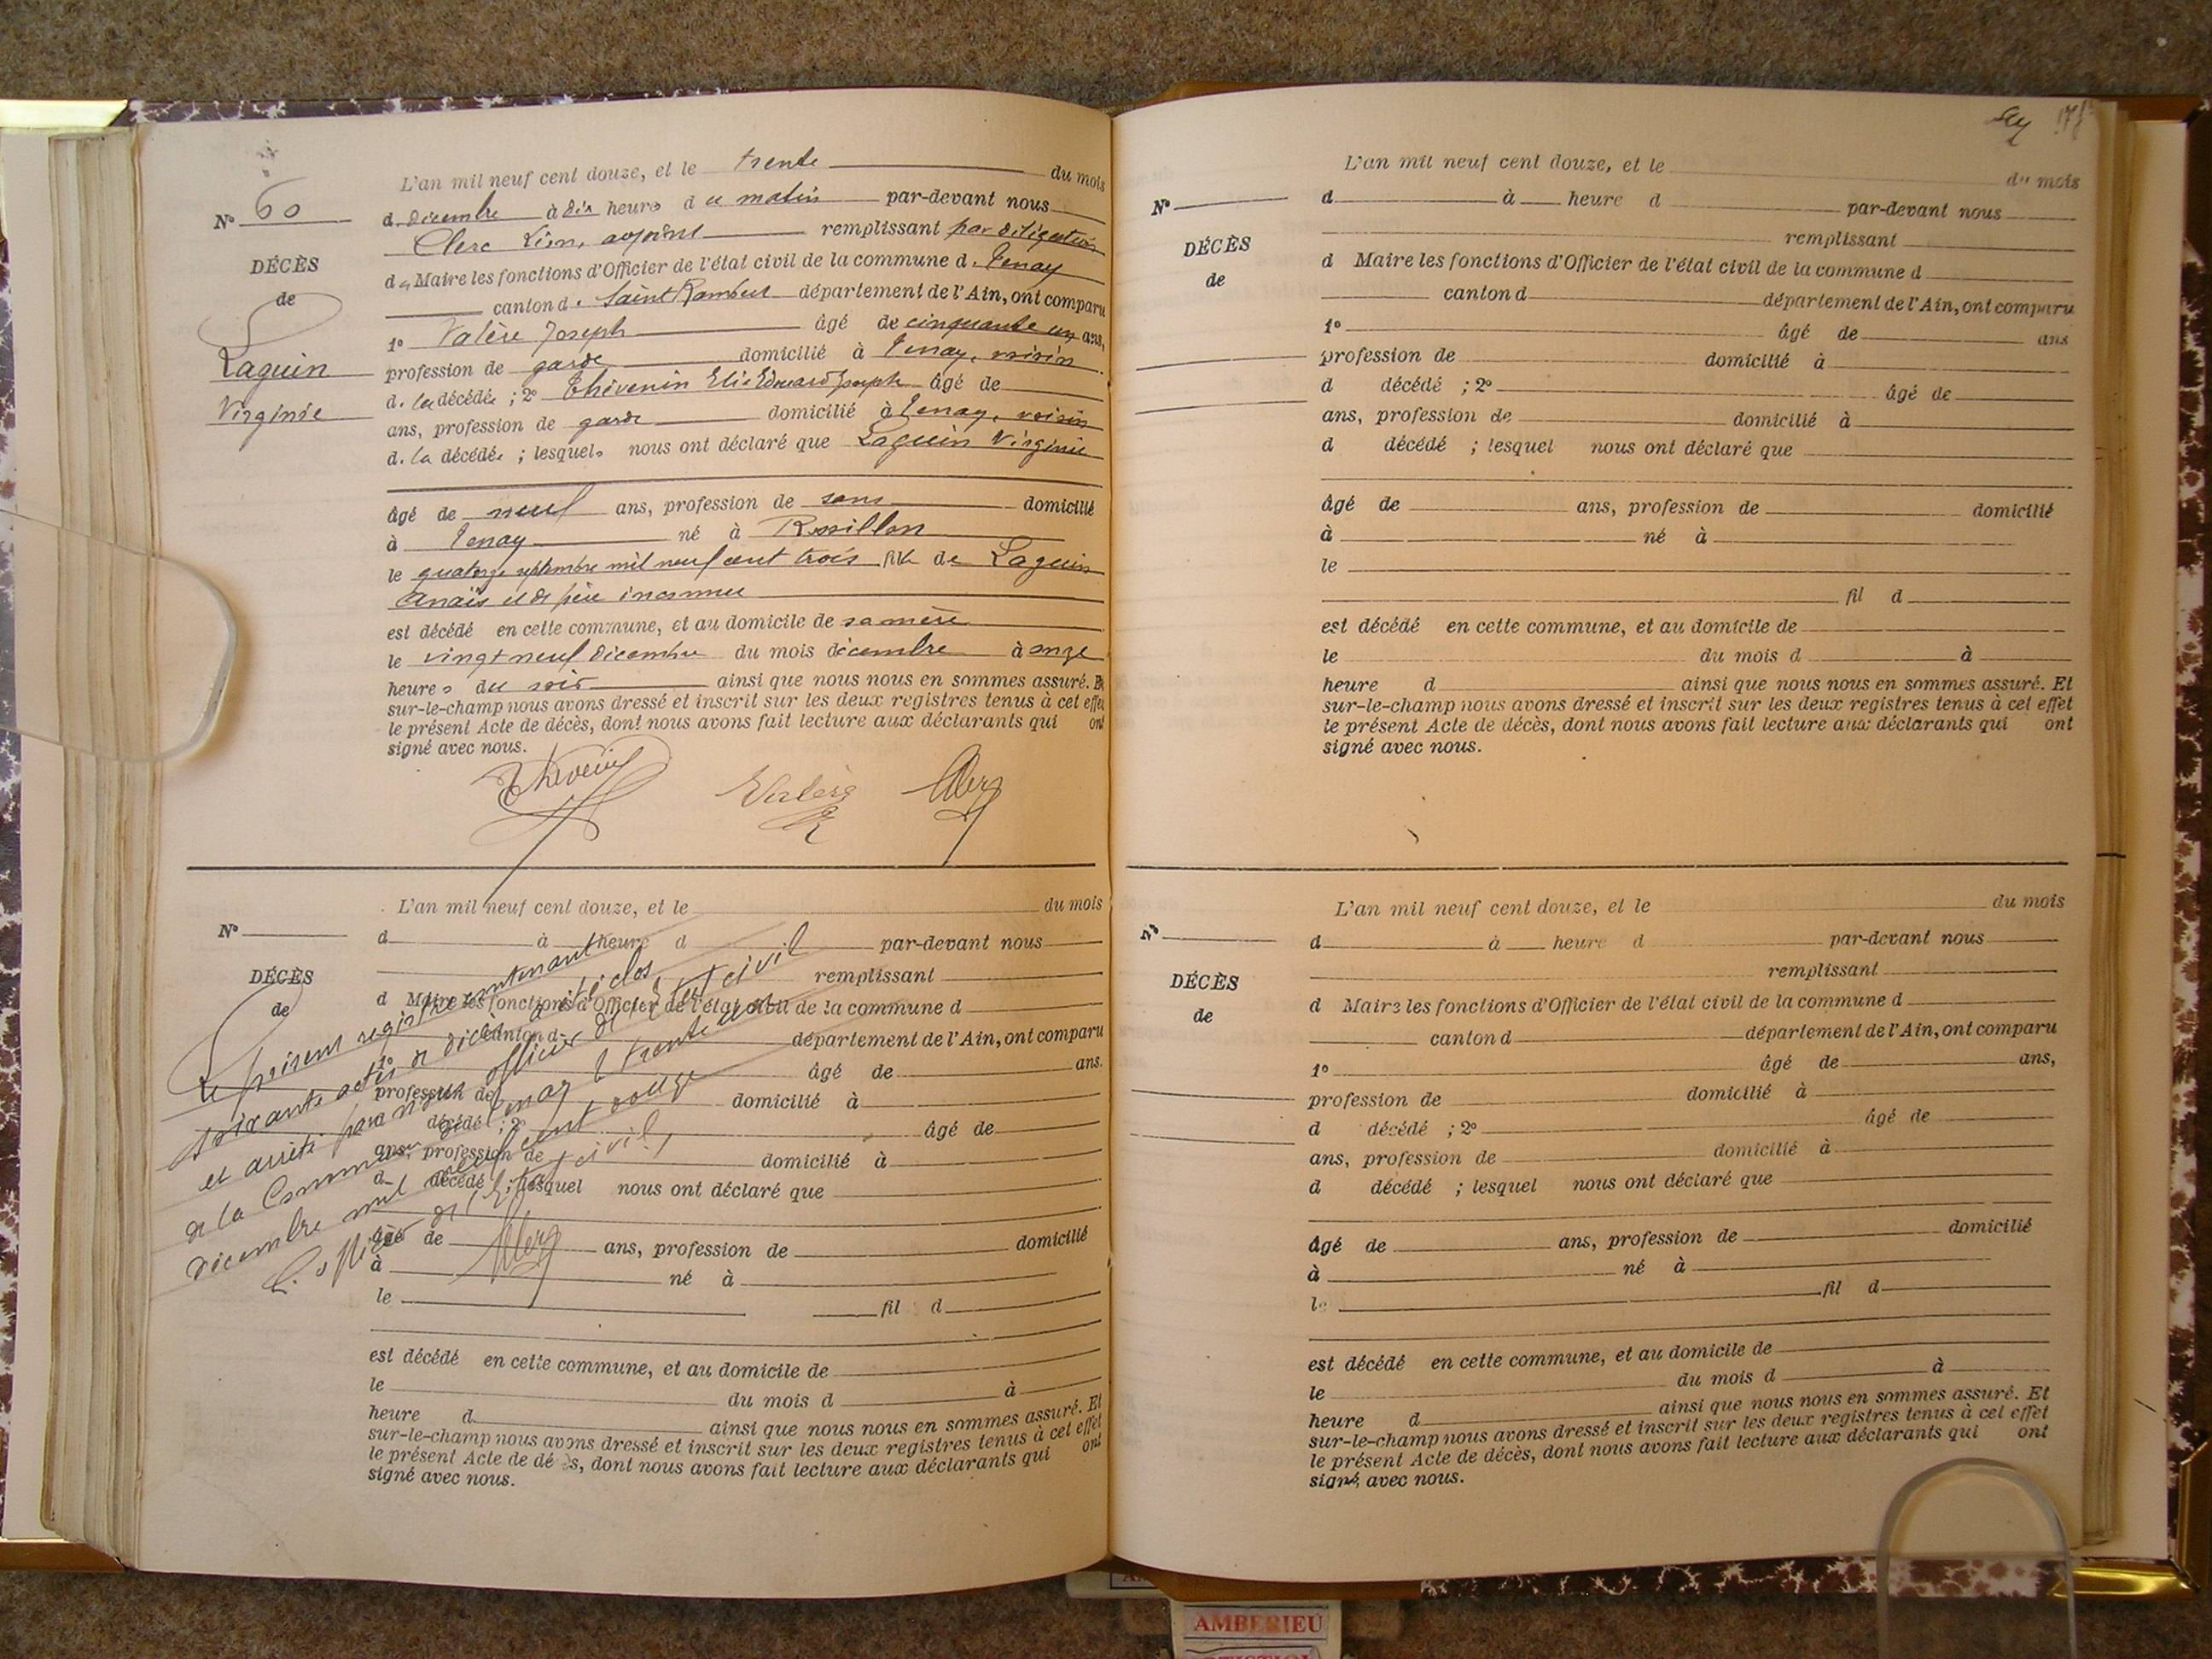 L'an mil neuf cent douze, et le trente du mois
d décembre à dix heures du matin par-devant nous
Clerc Léon, adjoint remplissant par délégation
du Maire les fonctions d'Officier de l'état civil de la commune de Tenay
canton de Saint Rambert département de l'Ain, ont comparu
1° Valère Joseph âgé de cinquante un ans,
profession de garde domicilié à Tenay, voisin
de la décédée ; 2° Thévenin Elie Edouard Joseph âgé de
ans, profession de garde domicilié à Tenay, voisin
de la décédée ; lesquels nous ont déclaré que Laguin Virginie
âgé de neuf ans, profession de sans domicilié
à Tenay né à Rossillon
le quatorze septembre mil neuf cent trois fille de Laguin
Anaïs et de père inconnu
est décédé en cette commune, et au domicile de sa mère
le vingt neuf décembre du mois décembre à onze
heures du soir ainsi que nous nous en sommes assuré. Et
sur-le-champ nous avons dressé et inscrit sur les deux registres tenus à cet effet
le présent Acte de décès, dont nous avons fait lecture aux déclarants qui ont
signé avec nous.
Thévenin Valère Clerc
N° 60
DÉCÈS
de
Laguin
Virginie
L'an mil neuf cent douze, et le du mois
d à heure d par-devant nous
remplissant
d Maire les fonctions d'Officier de l'état civil de la commune d
canton d département de l'Ain, ont comparu
1° âgé de ans.
profession de domicilié à
d décédé ; 2° âgé de
ans, profession de domicilié à
d décédé ; lesquel nous ont déclaré que
âgé de ans, profession de domicilié
à né à
le fil d
est décédé en cette commune, et au domicile de
le du mois d à
heure d ainsi que nous nous en sommes assuré. Et
sur-le-champ nous avons dressé et inscrit sur les deux registres tenus à cet effet
le présent Acte de décès, dont nous avons fait lecture aux déclarants qui ont
signé avec nous.
N°
DÉCÈS
de
Le présent registre contenant
soixante actes de décès a été clos
et arrêté par nous officier de l'état civil
de la Commune de Tenay le trente un
décembre mil neuf cent douze
L'officier de l'Etat civil,
Clerc
L'an mil neuf cent douze, et le du mois
d à heure d par-devant nous
remplissant
d Maire les fonctions d'Officier de l'état civil de la commune d
canton d département de l'Ain, ont comparu
1° âgé de ans
profession de domicilié à
d décédé ; 2° âgé de
ans, profession de domicilié à
d décédé ; lesquel nous ont déclaré que
âgé de ans, profession de domicilié
à né à
le
fil d
est décédé en cette commune, et au domicile de
le du mois d à
heure d ainsi que nous nous en sommes assuré. Et
sur-le-champ nous avons dressé et inscrit sur les deux registres tenus à cet effet
le présent Acte de décès, dont nous avons fait lecture aux déclarants qui ont
signé avec nous.
N°
DÉCÈS
de
L'an mil neuf cent douze, et le du mois
d à heure d par-devant nous
remplissant
d Maire les fonctions d'Officier de l'état civil de la commune d
canton d département de l'Ain, ont comparu
1° âgé de ans,
profession de domicilié à
d décédé ; 2° âgé de
ans, profession de domicilié à
d décédé ; lesquel nous ont déclaré que
âgé de ans, profession de domicilié
à né à
le fil d
est décédé en cette commune, et au domicile de
le du mois d à
heure d ainsi que nous nous en sommes assuré. Et
sur-le-champ nous avons dressé et inscrit sur les deux registres tenus à cet effet
le présent Acte de décès, dont nous avons fait lecture aux déclarants qui ont
signé avec nous.
N°
DÉCÈS
de
AMBERIEU